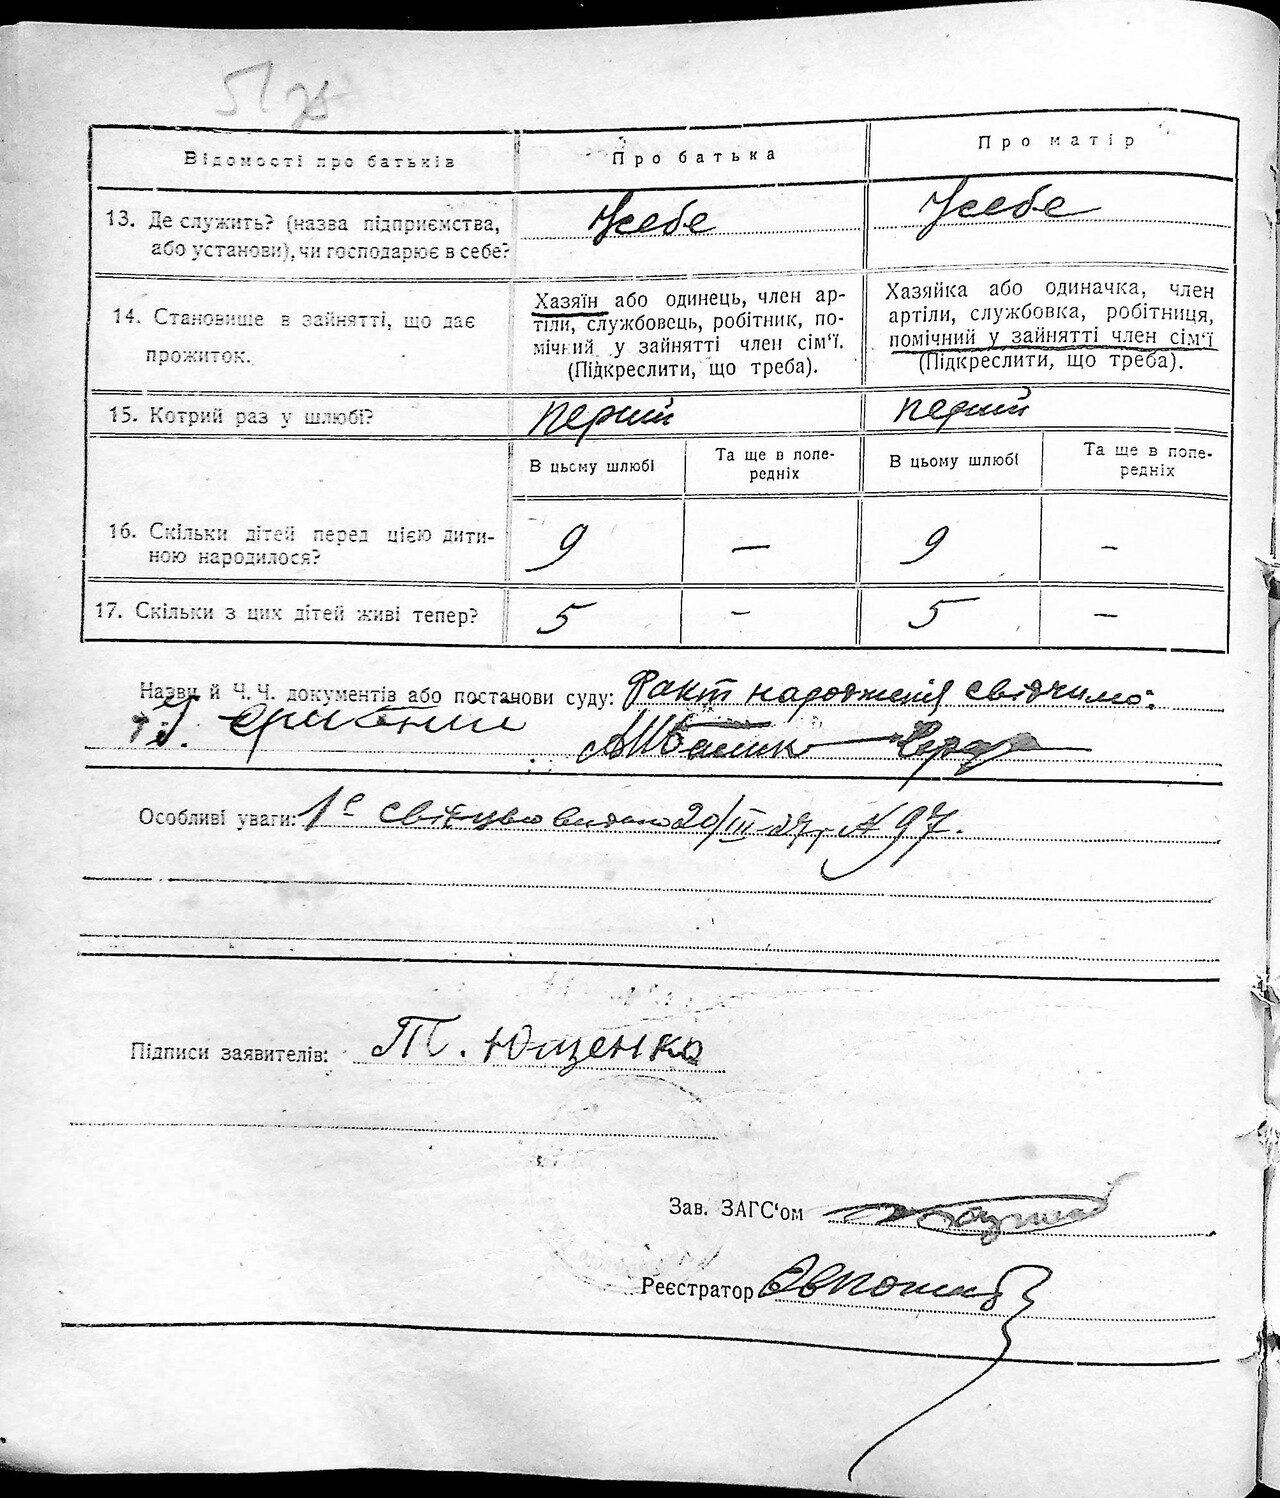 51 25
Відомості про батьків
Про батька
Про матір
13. Де служить? (назва підприємства,
або установи), чи господарює в себе?
Усебе
Усебе
14. Становище в зайнятті, що дає
прожиток.
Хазяїн або одинець, член ар-
тіли, службовець, робітник, по-
мічний у зайнятті член сім'ї.
(Підкреслити, що треба).
Хазяйка або одиначка, член
артіли, службовка, робітниця,
помічний у зайнятті член сім'ї
(Підкреслити, що треба).
15. Котрий раз у шлюбі?
перший
перший
В цьому шлюбі
Та ще в попе-
редніх
В цьому шлюбі
Та ще в попе-
редніх
16. Скільки дітей перед цією дити-
ною народилося?
9
—
9
–
17. Скільки з цих дітей живі тепер?
5
–
5
—
Назви й Ч.Ч. документів або постанови суду: Факт народження свідчимо:
Особливі уваги: 1е свідцво видано 20/III-27р. N 97.
Підписи заявителів: Т. Ющенко
Зав. ЗАГС'ом
Реєстратор